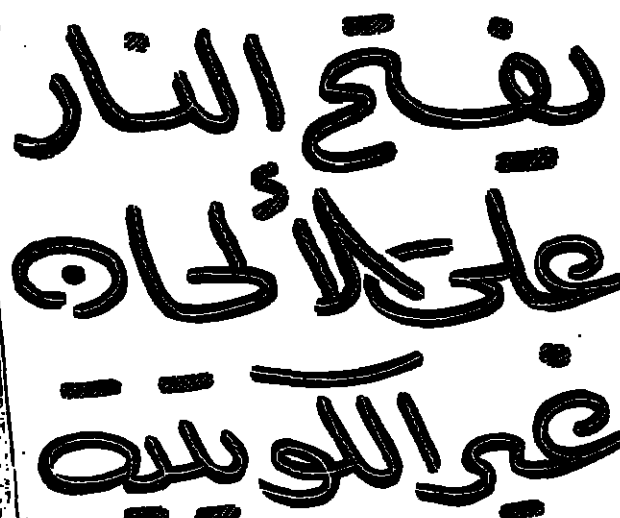 يفتح النار
على الألحان
غير الكويتية